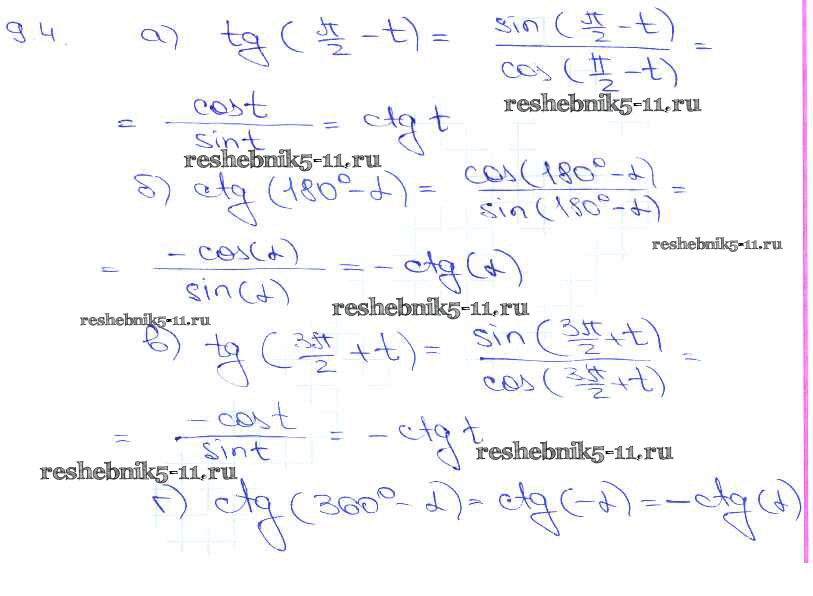 9.4. а) tg (π/2 - t) = sin (π/2 - t) / cos (π/2 - t) =
reshebnik5-11.ru
= cos t / sin t = ctg t
reshebnik5-11.ru
б) ctg (180° - α) = cos(180° - α) / sin(180° - α) =
reshebnik5-11.ru
= - cos(α) / sin(α) = - ctg(α)
reshebnik5-11.ru
reshebnik5-11.ru
в) tg (3π/2 + t) = sin (3π/2 + t) / cos (3π/2 + t) =
= - cos t / sin t = - ctg t
reshebnik5-11.ru
reshebnik5-11.ru
г) ctg (360° - α) = ctg (-α) = - ctg (α)